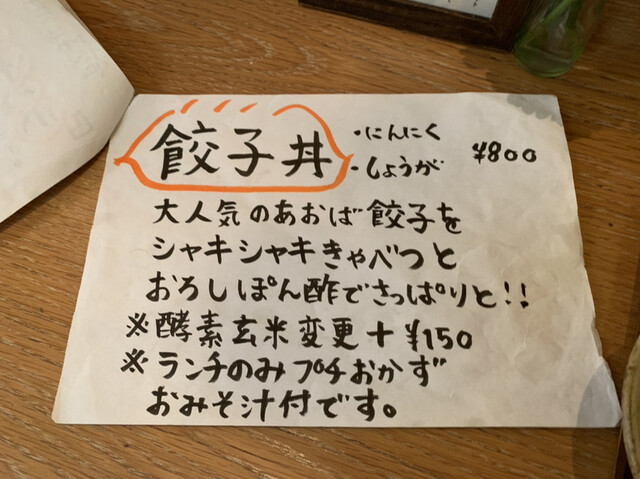 餃子丼 ・にんにく ・しょうが ¥800
大人気のあおば餃子を
シャキシャキきゃべつと
おろしぽん酢でさっぱりと!!
※酵素玄米変更+¥150
※ランチのみプチおかず
おみそ汁付です。